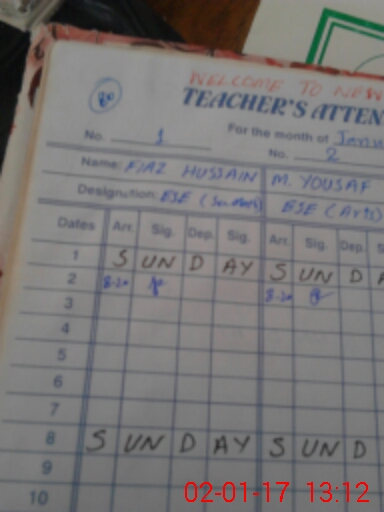 WELCOME TO NEW
80
TEACHER'S ATTEN
No. 1 For the month of Janu
No. 2
Name: EJAZ HUSSAIN M. YOUSAF
Designation: ESE ( ESE (Arts)
Dates Arr. Sig. Dep. Sig. Arr. Sig. Dep.
1 S UN D AY S UN D A
2 8-20 8-20
3
4
5
6
7
8 S UN D AY S UN D
9
10
02-01-17 13:12